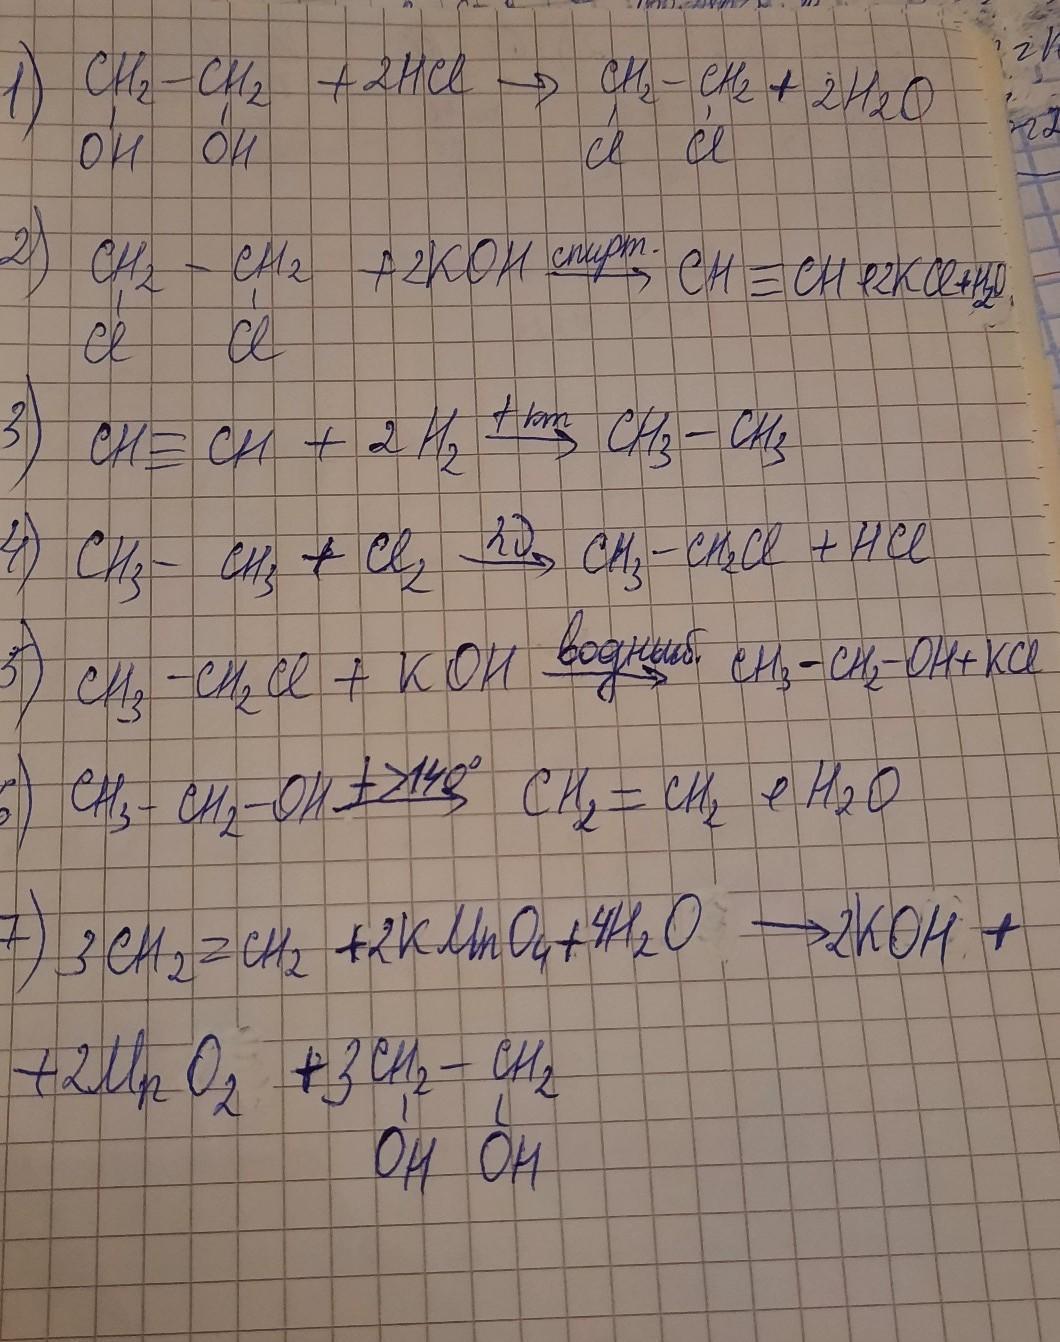 1) CH2 – CH2 + 2HCl → CH2 – CH2 + 2H2O
OH OH Cl Cl
2) CH2 – CH2 + 2KOH спирт. → CH ≡ CH + 2KCl + H2O
Cl Cl
3) CH ≡ CH + 2H2 t кт → CH3 – CH3
4) CH3 – CH3 + Cl2 hν → CH3 – CH2Cl + HCl
5) CH3 – CH2Cl + KOH водный. → CH3 – CH2 – OH + KCl
6) CH3 – CH2 – OH t > 140° → CH2 = CH2 + H2O
7) 3CH2 = CH2 + 2KMnO4 + 4H2O → 2KOH +
+ 2MnO2 + 3CH2 – CH2
OH OH